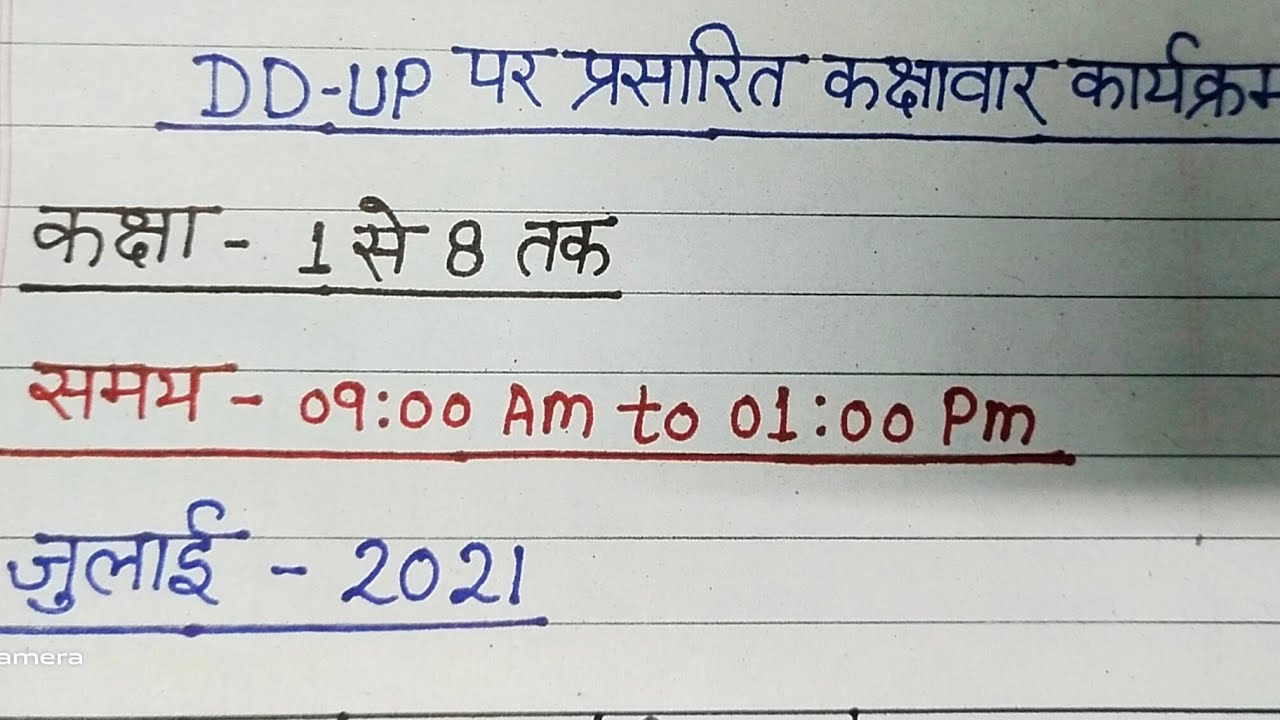 DD-UP पर प्रसारित कक्षावार कार्यक्रम
कक्षा - 1 से 8 तक
समय - 09:00 Am to 01:00 Pm
जुलाई - 2021
amera